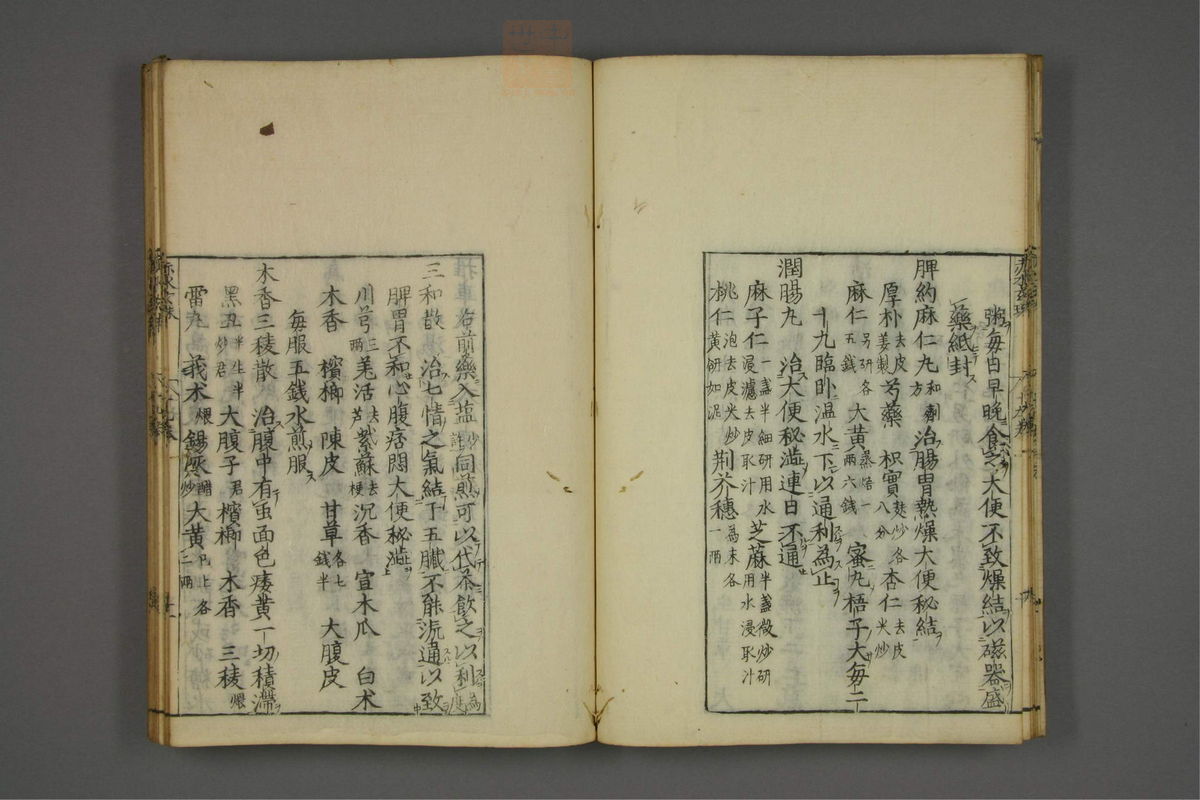 粥毎日早晩食之大便不致燥結以磁器盛
藥紙封
脾約麻仁丸和劑方治腸胃熱燥大便秘結
厚朴去皮姜製芍藥枳實麩炒各八分杏仁去皮米炒
麻仁另研各五錢大黄蒸焙一兩六錢蜜丸梧子大毎二
十九臨卧温水下以通利為止
潤腸丸治大便秘澁連日不通
麻子仁一盞半細研用水浸濾去皮取汁芝蔴半盞微炒研用水浸取汁
桃仁泡去皮米炒黄研如泥荆芥穗為末各一兩
右前藥入塩少許同煎可以代茶飲之以利為度
三和散治七情之氣結于五臓不能流通以致
脾胃不和心腹痞悶大便秘澁
川芎三兩羌活去芦紫蘇去梗沉香宣木瓜白术
木香檳榔陳皮甘草各七錢半大腹皮
毎服五錢水煎服
木香三稜散治腹中有虫面色痿黄一切積滯
黑丑半生半炒君大腹子君檳榔木香三稜煨
雷丸莪术煨錫灰醋炒大黄已上各三兩